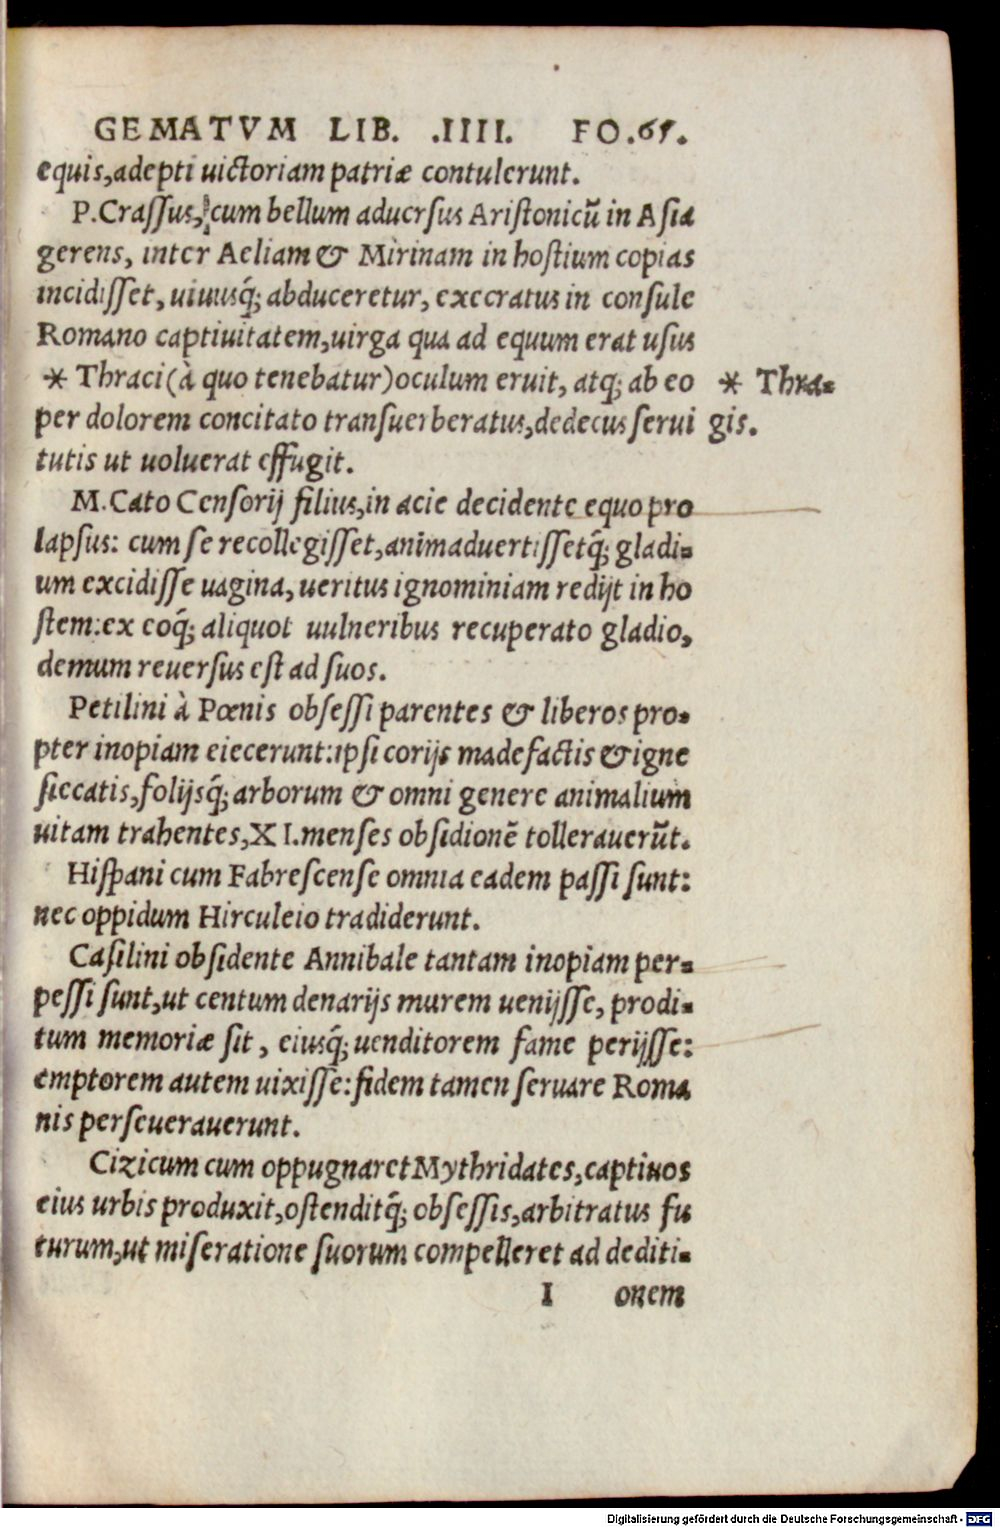 GEMATVM LIB. .IIII. FO.65.
equis,adepti uictoriam patriæ contulerunt.
P.Crassus, cum bellum aduersus Aristonicũ in Asia
gerens, inter Aeliam & Mirinam in hostium copias
incidisset, uiuusq́; abduceretur, execratus in consule
Romano captiuitatem,uirga qua ad equum erat usus
* Thraci(à quo tenebatur)oculum eruit, atq; ab eo
* Thra-
per dolorem concitato transuerberatus,dedecus serui
gis.
tutis ut uoluerat effugit.
M.Cato Censorij filius,in acie decidente equo pro
lapsus: cum se recollegisset,animaduertissetq́; gladi-
um excidisse uagina, ueritus ignominiam redijt in ho
stem:ex eoq́; aliquot uulneribus recuperato gladio,
demum reuersus est ad suos.
Petilini à Pœnis obsessi parentes & liberos pro-
pter inopiam eiecerunt:ipsi corijs madefactis & igne
siccatis,folijsq́; arborum & omni genere animalium
uitam trahentes,XI.menses obsidionẽ tollerauerũt.
Hispani cum Fabrescense omnia eadem passi sunt:
nec oppidum Hirculeio tradiderunt.
Casilini obsidente Annibale tantam inopiam per-
pessi sunt,ut centum denarijs murem uenijsse, prodi-
tum memoriæ sit, eiusq́; uenditorem fame perijsse:
emptorem autem uixisse:fidem tamen seruare Roma
nis perseuerauerunt.
Cizicum cum oppugnaret Mythridates,captiuos
eius urbis produxit,ostenditq́; obsessis,arbitratus fu
turum,ut miseratione suorum compelleret ad dediti-
I onem
Digitalisierung gefördert durch die Deutsche Forschungsgemeinschaft - DFG